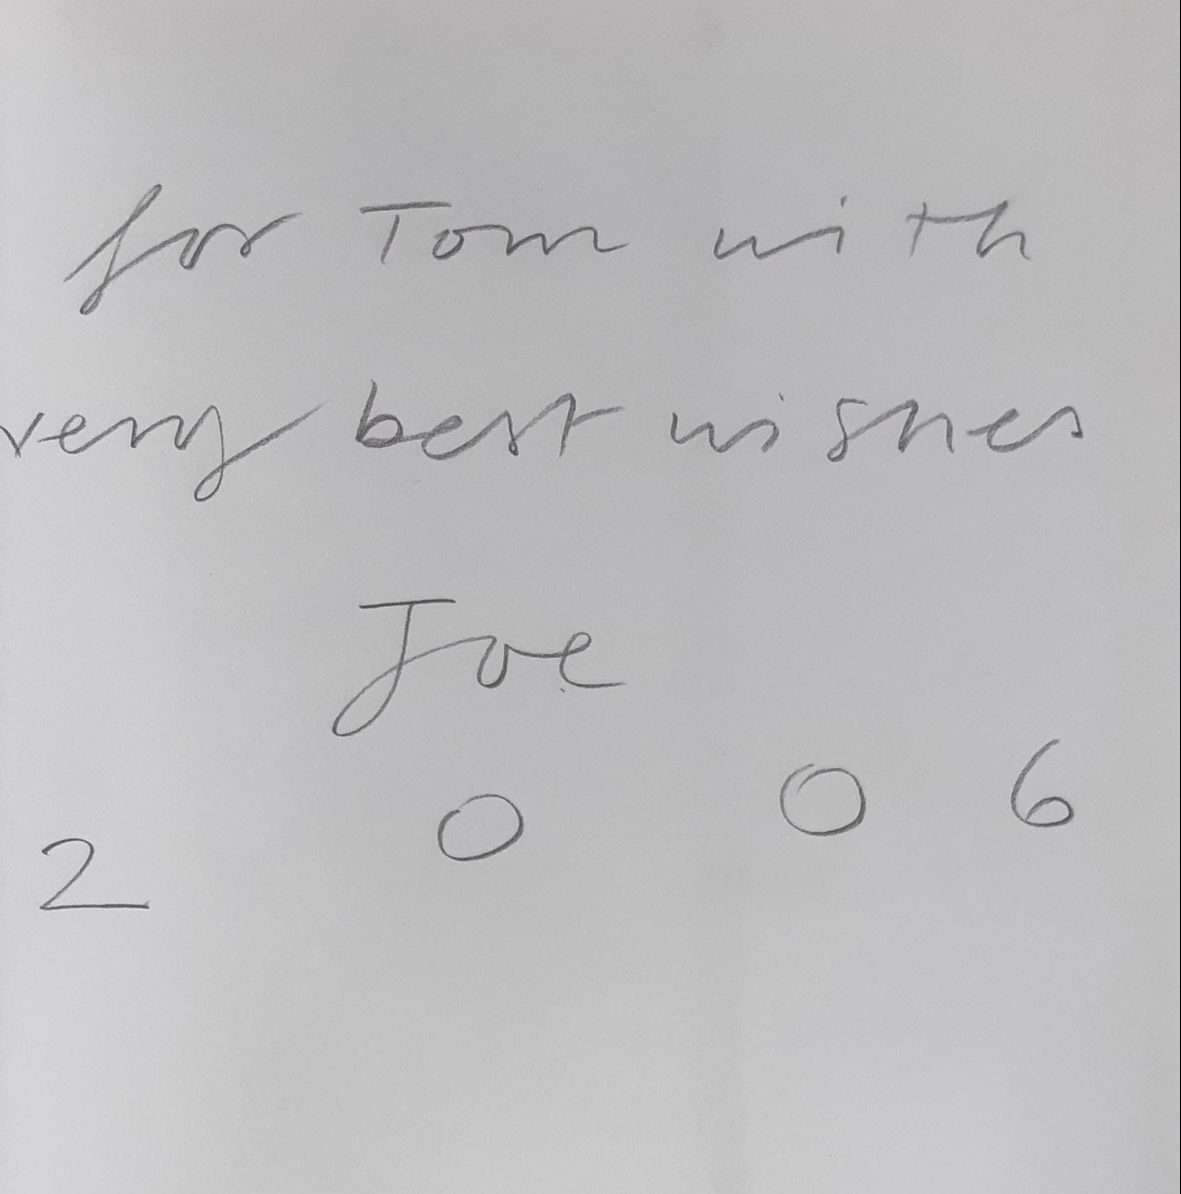 for Tom with
very best wishes
Joe
2 0 0 6